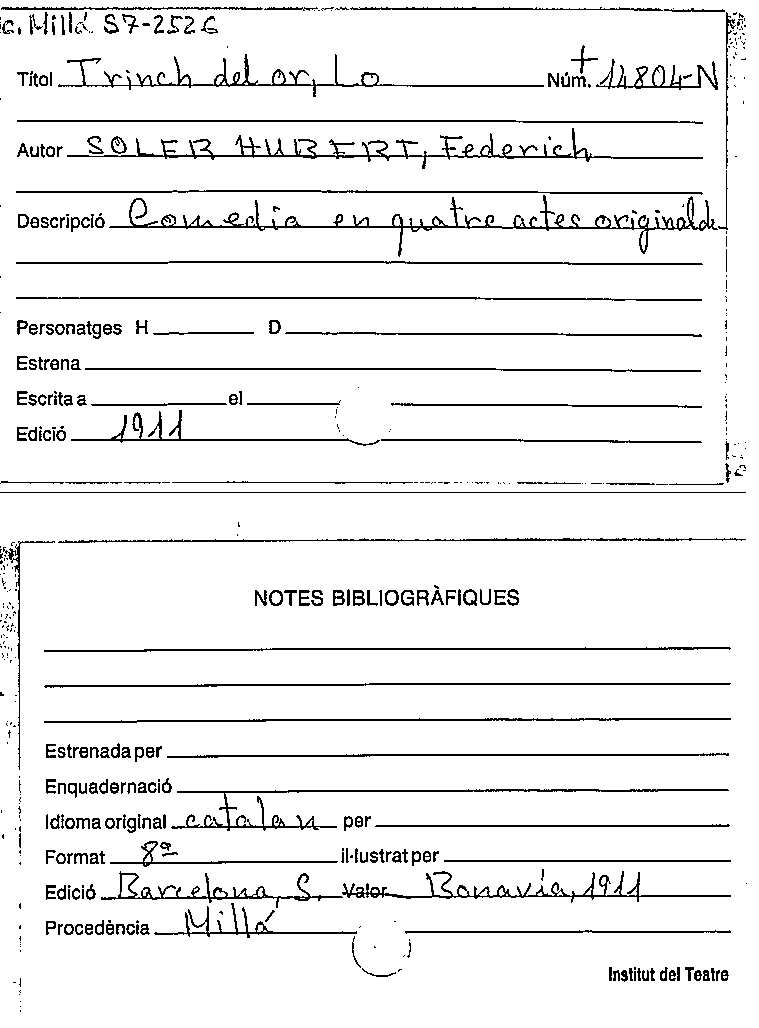 c. Millá S7-2526
Títol Trinch del or, Lo Núm. + 14804-N
Autor SOLER HUBERT, Federich
Descripció Comedia en quatre actes original de
Personatges H D
Estrena
Escrita a el
Edició 1911
NOTES BIBLIOGRÀFIQUES
Estrenada per
Enquadernació
Idioma original catalan per
Format 8º il·lustrat per
Edició Barcelona, S. Valor Bonavía, 1911
Procedència Millá
Institut del Teatre